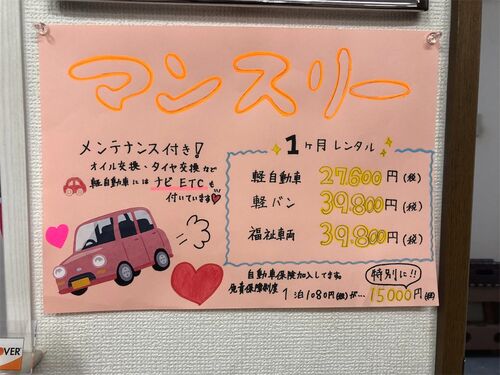 マンスリー
メンテナンス付き!
オイル交換・タイヤ交換など
軽自動車には ナビ ETCも
付いています
1ヶ月 レンタル
軽自動車 27.600円(税)
軽バン 39.800円(税)
福祉車両 39.800円(税)
自動車保険加入してます。
免責保障制度
特別に!!
1泊1080円(税)が… 15000円(税)
OVER